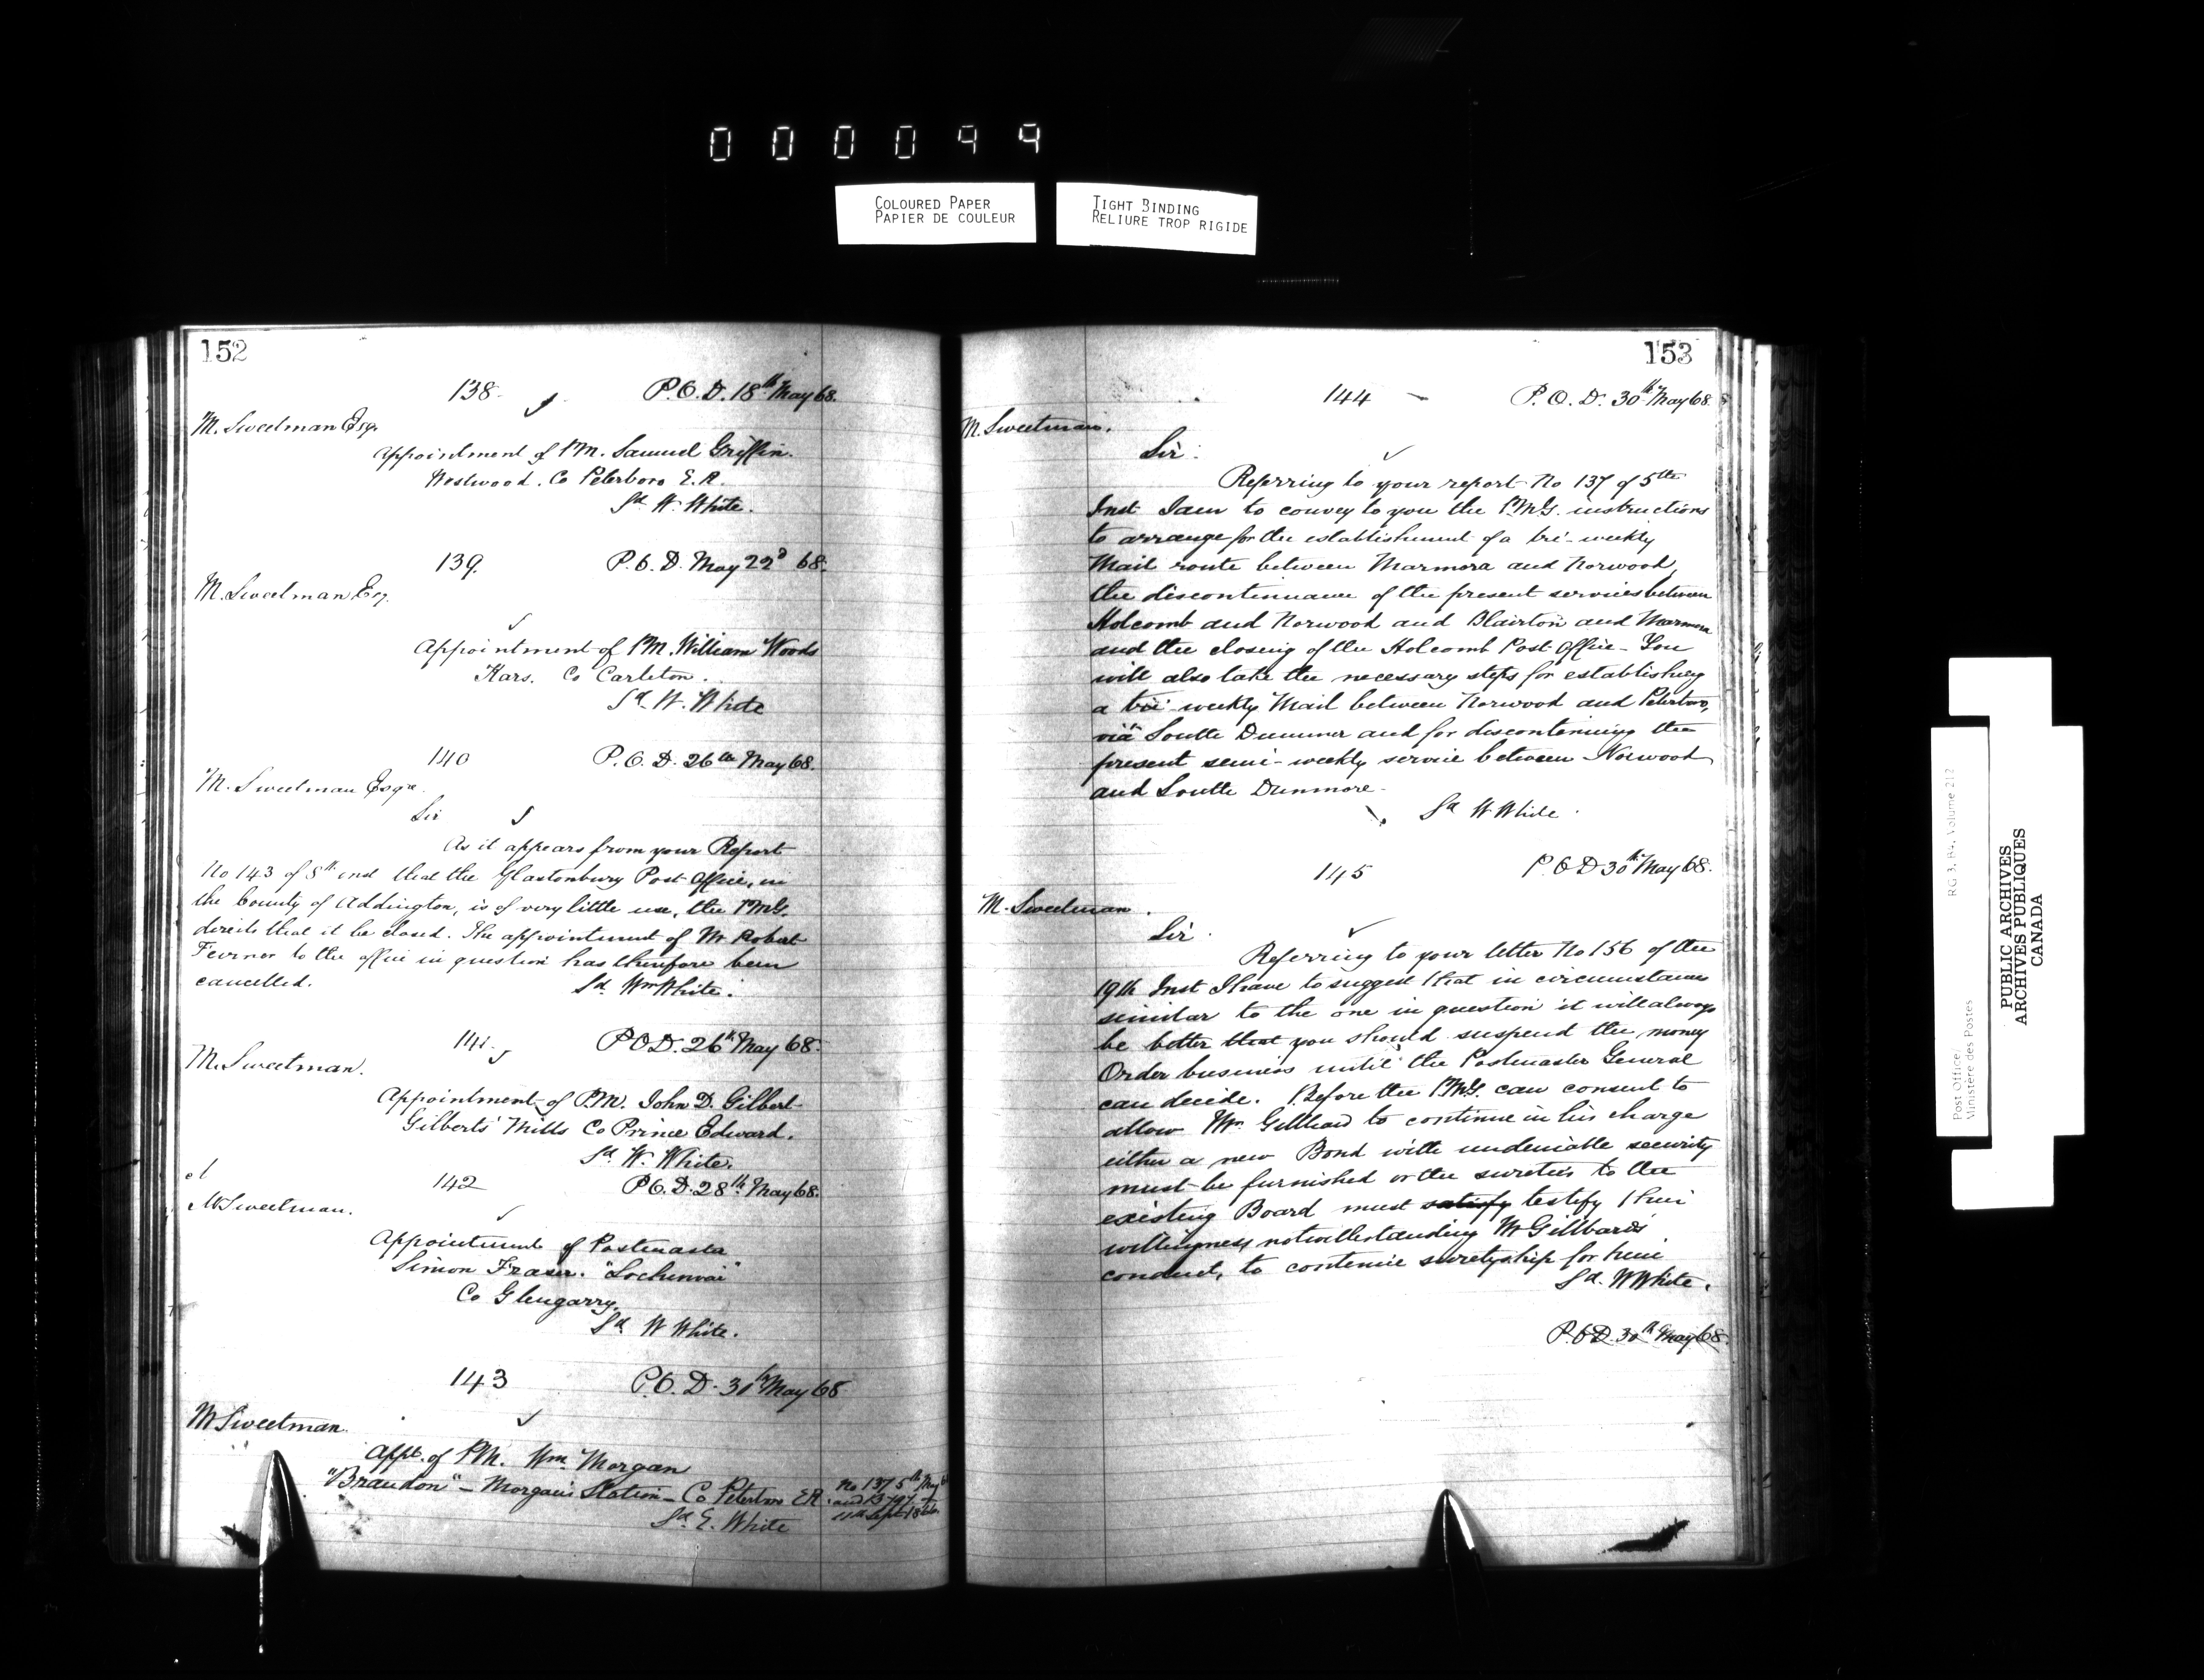 000099
COLOURED PAPER
PAPIER DE COULEUR
TIGHT BINDING
RELIURE TROP RIGIDE
152
138 P.O.D. 18th May 68.
M. Sweetman Esqr
Appointment of P.M. Samuel Griffin.
Westwood. Co Peterboro E.R.
Sd W. White.
139. P.O.D. May 22d 68.
M. Sweetman Esq.
Appointment of P.M. William Woods
Kars. Co Carleton.
Sd. W. White
140 P.O.D. 26th May 68.
M. Sweetman Esqre
Sir
As it appears from your Report
No 143 of 8th inst that the Glastonbury Post Office, in
the County of Addington, is of very little use, the P.M.G.
directs that it be closed. The appointment of Mr Robert
to the office in question has therefore been
cancelled.
Sd. Wm White.
141. P.O.D. 26th May 68.
M. Sweetman.
Appointment of P.M. John D. Gilbert
Gilberts' Mills Co Prince Edward.
Sd. W. White.
142 P.O.D. 28th May 68.
M Sweetman.
Appointment of Postmaster
Simon Fraser. "Lochinvar"
Co Glengarry.
Sd W White.
143 P.O.D. 30th May 68
M Sweetman.
Appt. of P.M. Wm Morgan
"Brandon" - Morgan's Station - Co Peterboro E.R.
Sd. E. White
No 137 5th May
11th Sept
153
144 P.O.D. 30th May 68.
M. Sweetman.
Sir.
Referring to your report No 137 of 5th
Inst I am to convey to you the P.M.G. instructions
to arrange for the establishment of a tri-weekly
Mail route between Marmora and Norwood,
the discontinuance of the present services between
Holcomb and Norwood and Blairton and Marmora
and the closing of the Holcomb Post Office - You
will also take the necessary steps for establishing
a tri-weekly Mail between Norwood and Peterboro,
via South Dummer and for discontinuing the
present semi-weekly service between Norwood
and South Dunmore -
Sd W White.
145 P.O.D 30th May 68.
M. Sweetman.
Sir.
Referring to your letter No 156 of the
19th Inst I have to suggest that in circumstances
similar to the one in question it will always
be better that you should suspend the money
Order business until the Postmaster General
can decide. Before the P.M.G. can consent to
allow Mr. Gillbard to continue in his charge
either a new Bond with undeniable security
must be furnished or the sureties to the
existing Board must satisfy testify their
willingness notwithstanding Mr Gillbard's
conduct, to continue suretyship for him
Sd. W White.
P.O.D. 30th May 68.
Post Office/
Ministère des Postes
RG 3, B4, Volume 212
PUBLIC ARCHIVES
ARCHIVES PUBLIQUES
CANADA